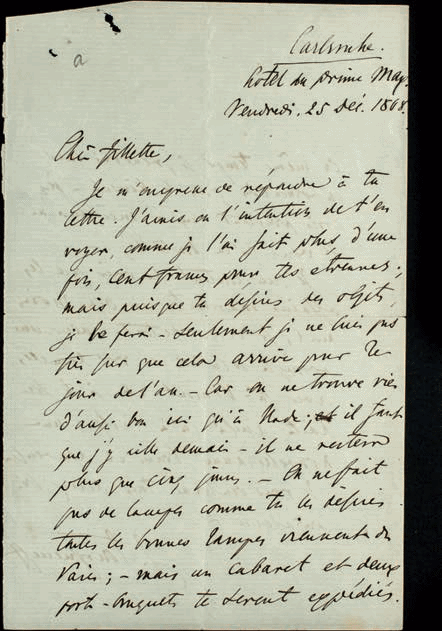 a
Carlsruhe.
hôtel du prince Max.
Vendredi. 25 Déc. 1868.
Chère fillette,
Je m'empresse de répondre à ta
lettre. J'avais eu l'intention de t'en
voyer, comme je l'ai fait plus d'une
fois, cent francs pour tes étrennes,
mais puisque tu désires des objets,
je le ferai – seulement je ne suis pas
très sûr que cela arrive pour le
jour de l'an. – Car on ne trouve rien
d'aussi bon ici qu'à Bade; et il faut
que j'y aille demain – il ne restera
plus que cinq jours. – On ne fait
pas de lampes comme tu les désires
toutes les bonnes lampes viennent de
Paris; – mais un cabaret et deux
porte-bouquets te seront expédiés.